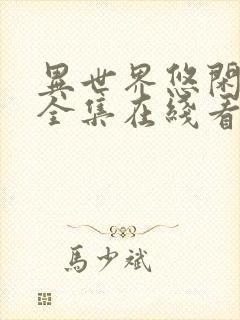 異世界悠閑
全集在綫看
馬少斌